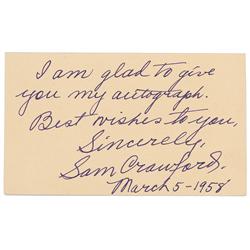 I am glad to give
you my autograph.
Best wishes to you,
Sincerely,
Sam Crawford.
March 5-1958